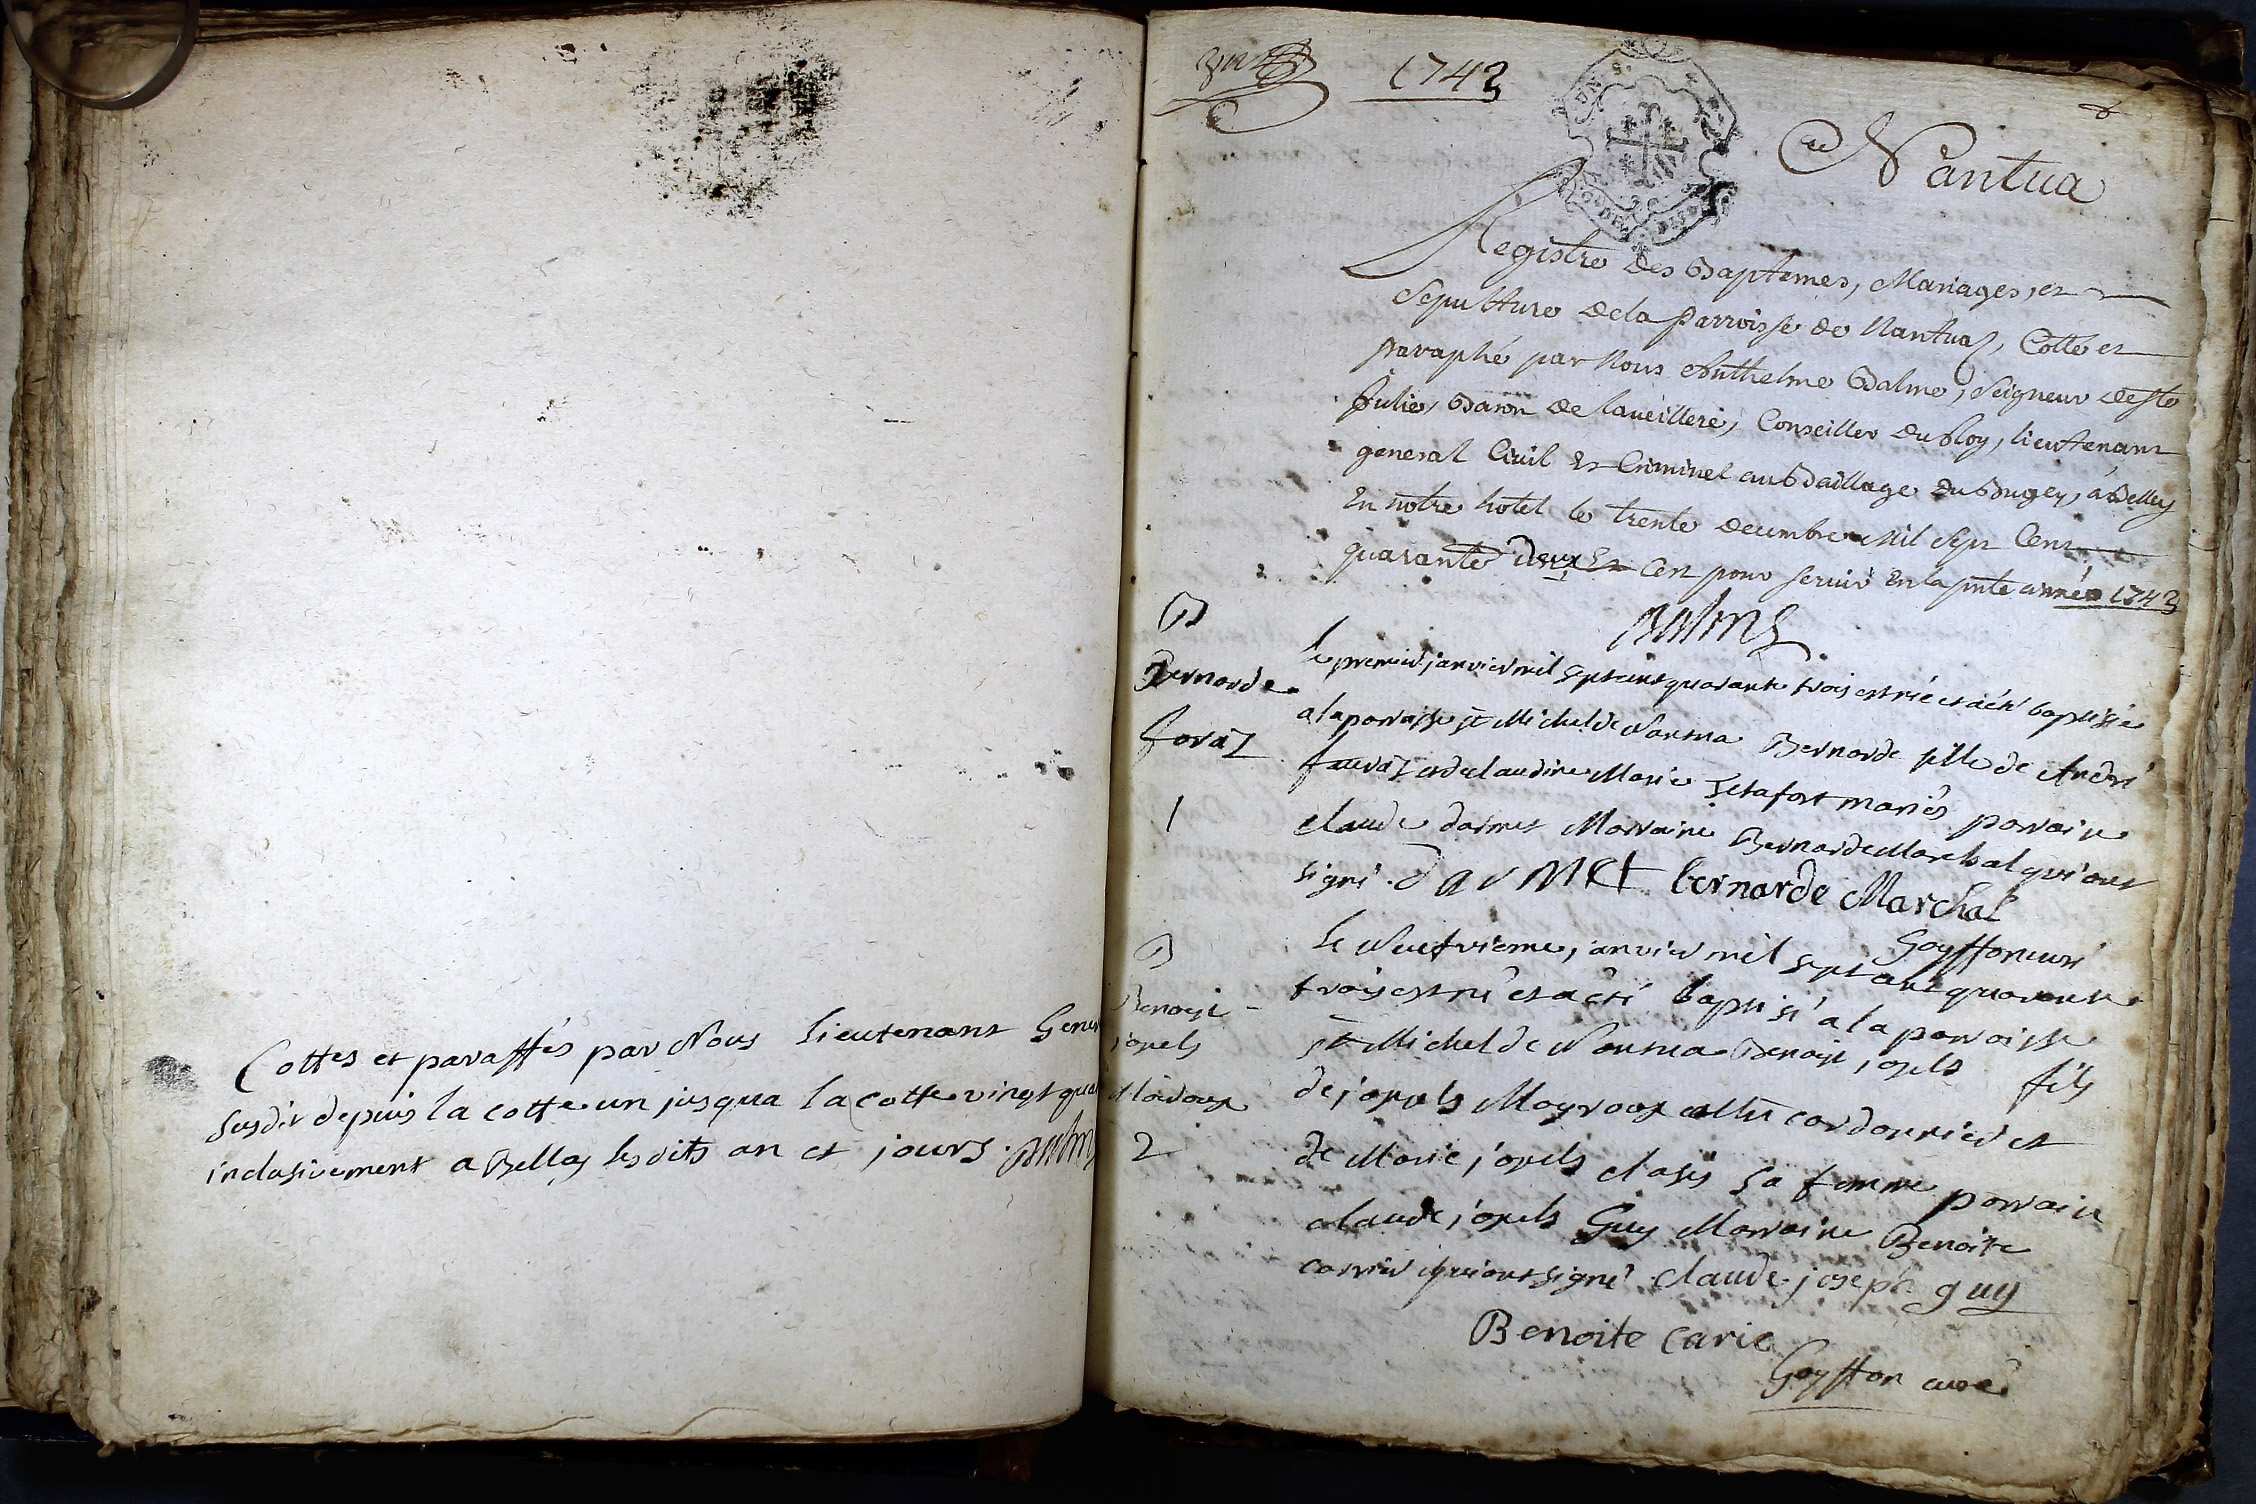 Cottés et paraffés par Nous Lieutenant Gener
susdit depuis la cotte un jusqua la cotte vingt qua
inclusivement a Belley lesdits an et jours. Balme
1743
Nantua
Registre des Baptemes, Mariages, et
Sepulture de la parroisse de Nantua, Cotté et
paraphé par Nous Anthelme Balme, Seigneur de Ste
Julie, Baron de laveilleré, Conseiller du Roy, lieutenant
general Civil et Criminel au Bailliage du Bugey, à Belley
En notre hotel le trente decembre Mil Sept Cent
quarante deux Et Cen pour servir En la pnte année 1743
Balme
B
Bernarde
foraz
1
le premier janvier mil septcent quarante trois est née et a été baptisée
a la parroisse st Michel de Nantua Bernarde fille de André
favraz et de claudine Marie mariés parrain
claude darmet Marraine Bernarde Marchal qui ont
signé. darmet bernarde Marchal
Goyffon curé
B
Benoist
joseph
2
le Neufvieme janvier mil sept cent quarante
trois est né et a été baptisé a la parroisse
st Michel de Nantua Benoist joseph fils
de joseph cordonnier et
de Marie joseph sa femme parrain
claude joseph Guy Marraine Benoite
carrier qui ont signé. claude joseph guy
Benoite carie
Goyffon curé